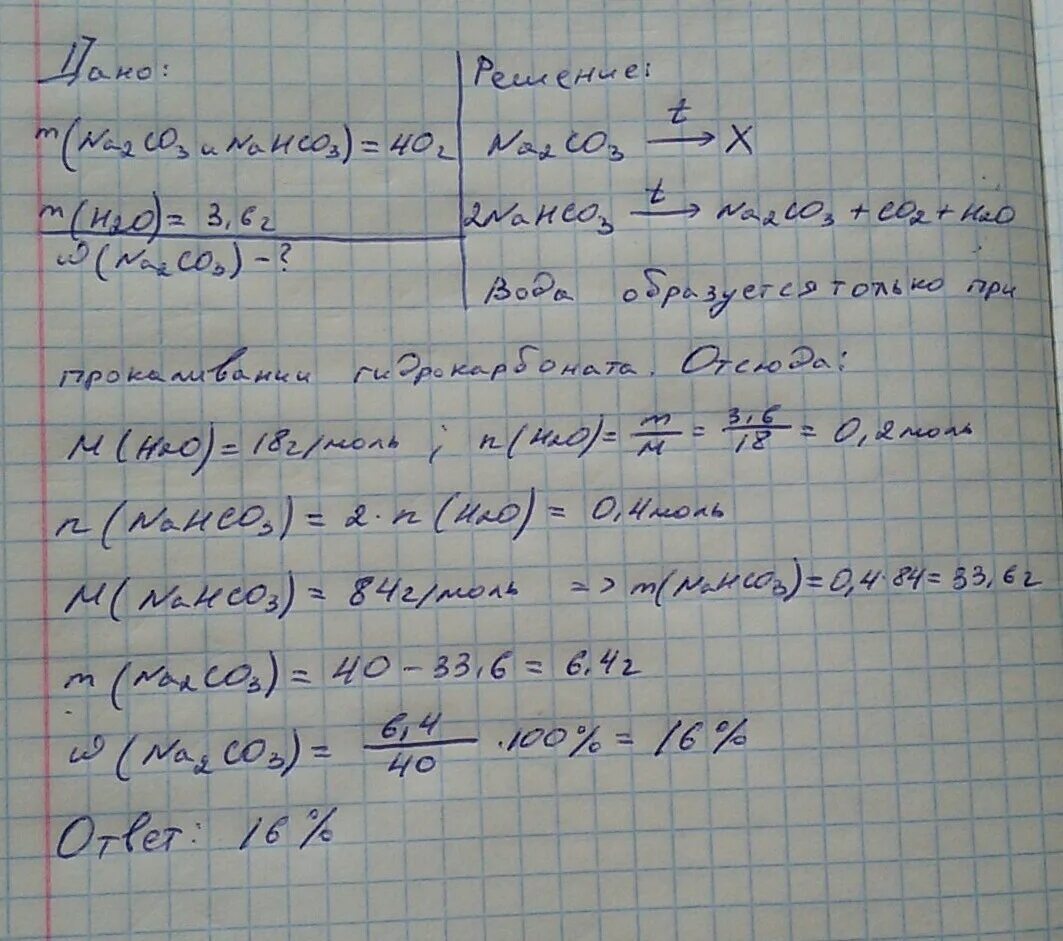 Дано:
m(Na2CO3 и NaHCO3) = 40г
m(H2O) = 3,6г
ω(Na2CO3) - ?
Решение:
Na2CO3 —t→ X
2NaHCO3 —t→ Na2CO3 + CO2 + H2O
Вода образуется только при
прокаливании гидрокарбоната. Отсюда:
M(H2O) = 18г/моль ; n(H2O) = m/M = 3,6/18 = 0,2моль
n(NaHCO3) = 2·n(H2O) = 0,4моль
M(NaHCO3) = 84г/моль => m(NaHCO3) = 0,4·84 = 33,6г
m(Na2CO3) = 40 - 33,6 = 6,4г
ω(Na2CO3) = 6,4/40 ·100% = 16%
Ответ: 16%